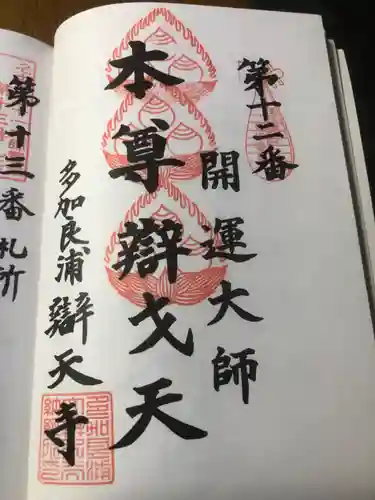 第十二番
開運大師
本尊辯才天
多加良浦辯天寺
第十三番札所